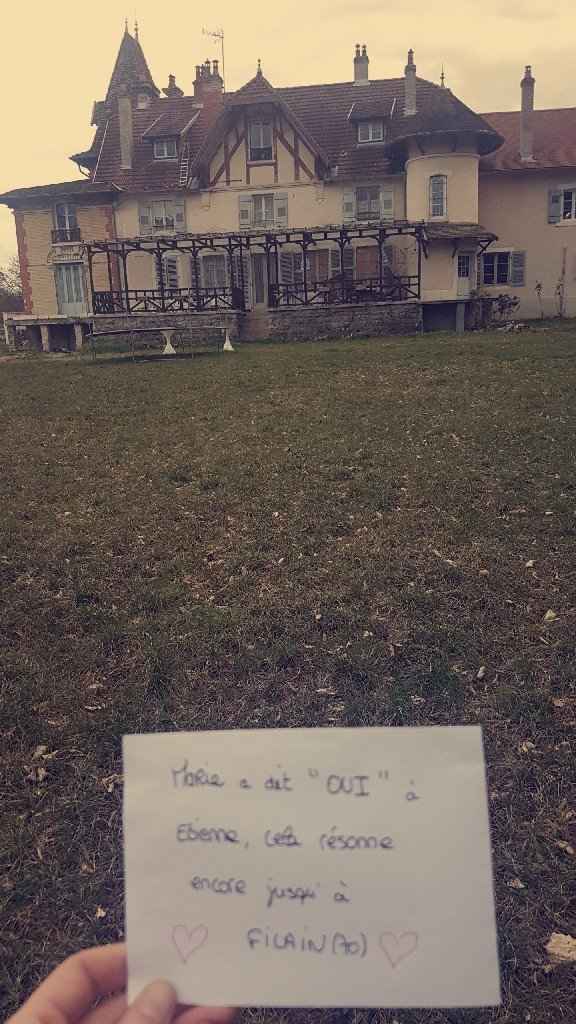 Marie a dit "OUI" à
Etienne, cela résonne
encore jusqu'à
FILAIN (70)